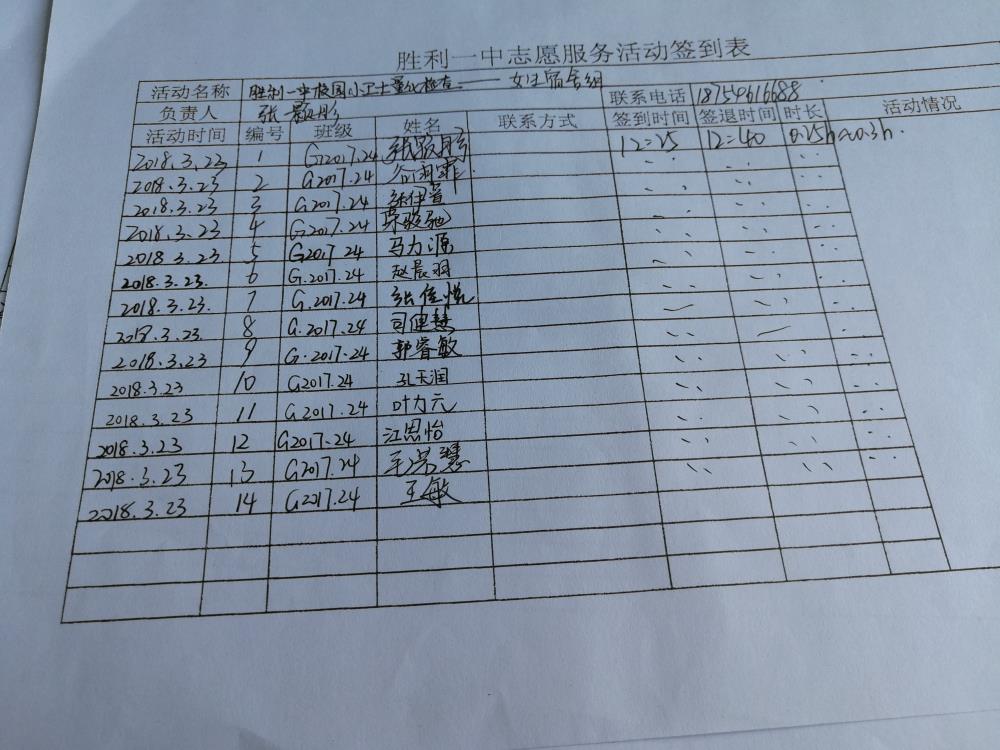 胜利一中志愿服务活动签到表
活动名称 胜利一中校园小卫士量化检查—— 女生宿舍组
负责人 张 联系电话 18754616688
活动时间 编号 班级 姓名 联系方式 签到时间 签退时间 时长 活动情况
2018.3.23 1 G2017.24 12=25 12=40 0.25h≈0.3h.
2018.3.23 2 G2017.24
2018.3.23 3 G2017.24
2018.3.23 4 G2017.24
2018.3.23 5 G2017 24 马力源
2018.3.23. 6 G.2017.24 赵晨羽
2018.3.23. 7 G.2017.24 张佳悦
2018.3.23. 8 G.2017.24
2018.3.23 9 G.2017.24 郭睿敏
2018.3.23 10 G2017.24 孔天润
2018.3.23 11 G2017.24 叶力元
2018.3.23 12 G2017-24 江思怡
2018.3.23 13 G2017.24
2018.3.23 14 G2017.24 王敏